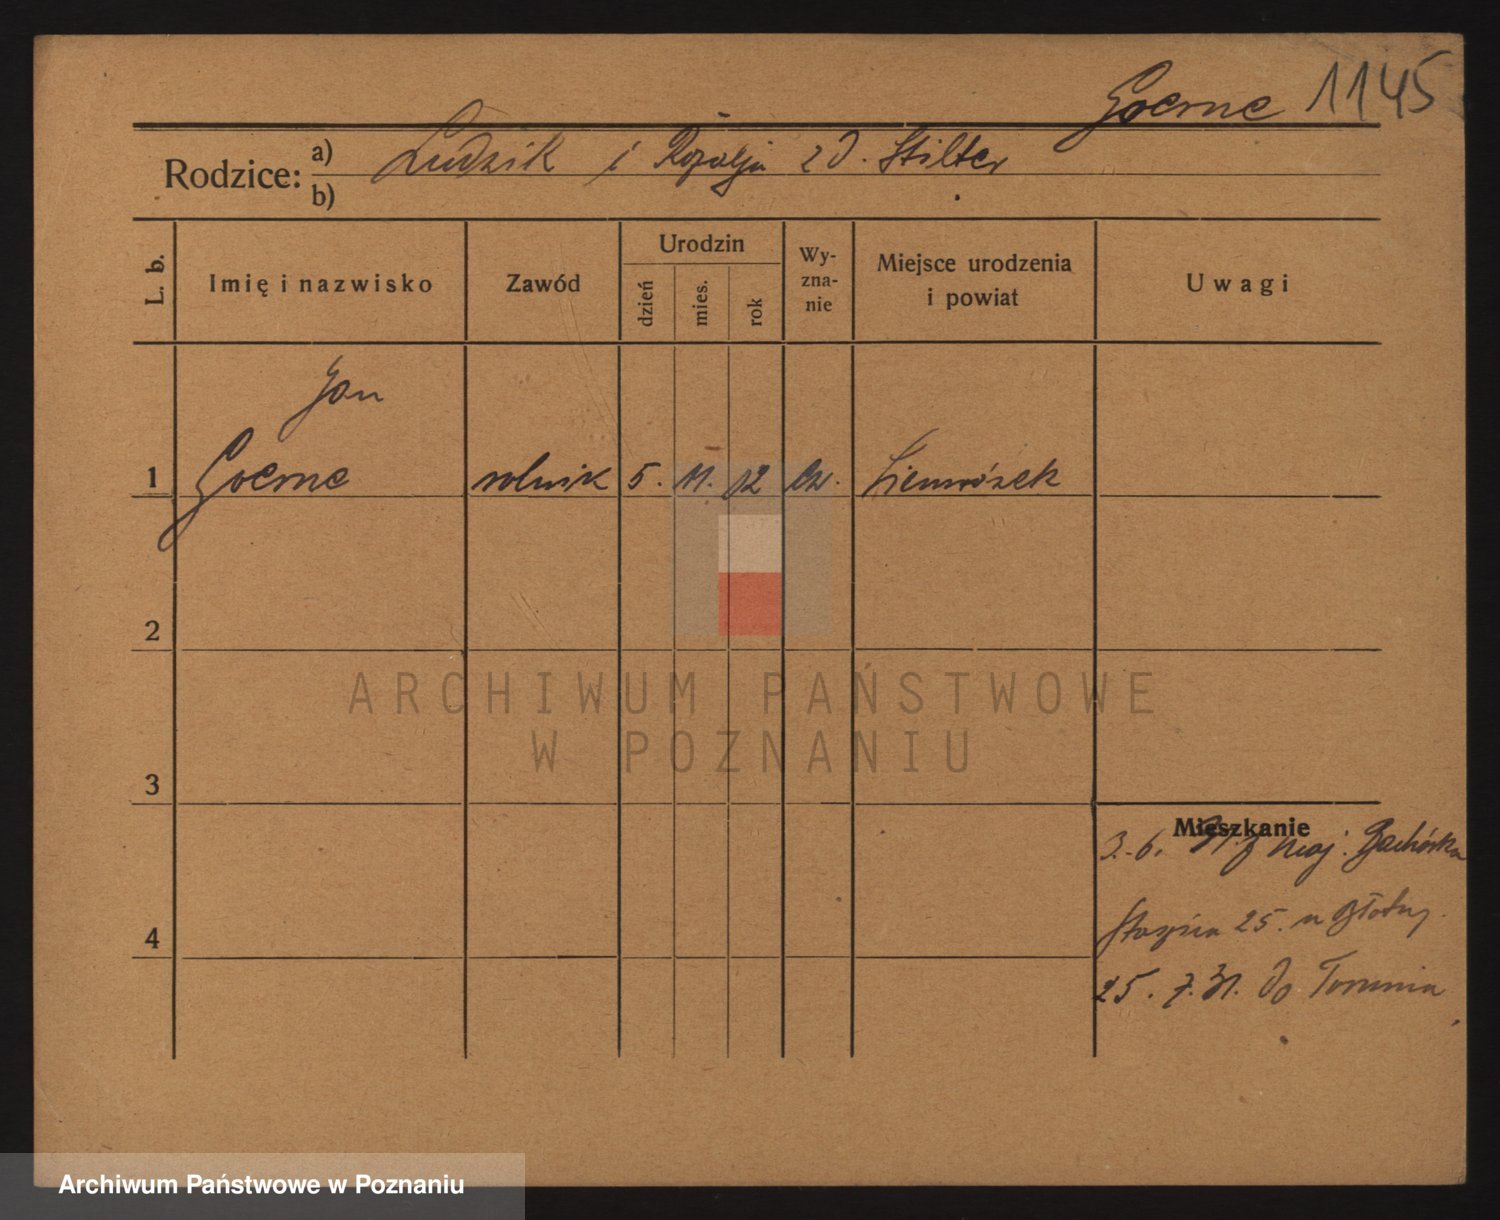 Goerne 1145
Rodzice: a) Ludzik i Rozalja z d. Stilter
b)
L. b. Imię i nazwisko Zawód Urodzin dzień mies. rok Wy-zna-nie Miejsce urodzenia i powiat Uwagi
Jan
1 Goerne rolnik 5. 11. 12
2
3
Mieszkanie
3.-6. 31 z maj.
4
25.
25. 7. 31. do Torunia
ARCHIWUM PAŃSTWOWE
W POZNANIU
Archiwum Państwowe w Poznaniu